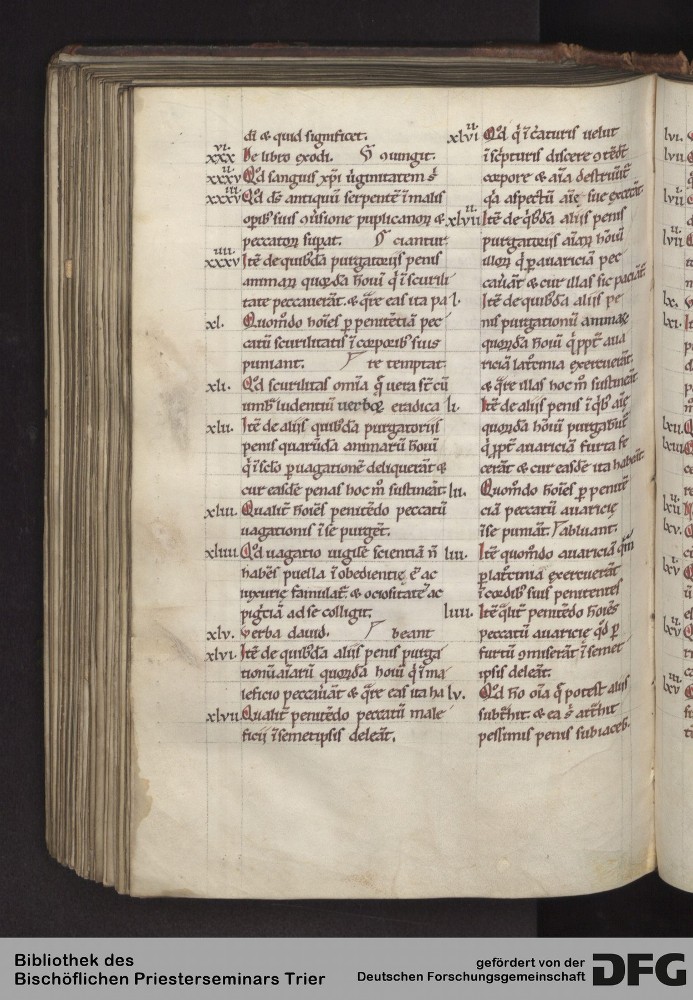 di & quid significet.
xxxvi. De libro exodi. ꝯiungit.
xxxvii. Qd sanguis xpi uiginitatem s̄
xxxviii. Qd ds̄ antiquū serpentē ī malis
opib suis ꝯuisione puplicanoꝝ &
peccatoꝝ supat. ciantur
xxxviiii. Itē de quibda purgatoriis penis
animaꝝ quoꝝda hōuī q̄ ī scurili
tate peccauerāt. & q̄re eas ita pa
xl. Quomdo hoīes p penitētiā pec
catū scurilitatis ī coꝛporibꝰ suis
puniant. re temptat
xli. Qd scurilitas omīa q̄ uera st̄ cū
umb ludentiū uerboꝝ eradica
xlii. Itē de aliis quibda purgatoriis
penis quarūda animarū hōuī
q̄ ī sclo p uagationē deliquerāt &
cur easdē penas hoc m̄ sustineāt
xliii. Qualit hoīes penitēdo peccatū
uagationis ī se purgēt.
xliiii. Qd uagatio uigilē scientiā n̄
habēs puella ī obedientię ē ac
luxurię famulat & ociositatē ac
pigciā ad se colligit.
xlv. Verba dauid. beant
xlvi. Itē de quibda aliis penis purga
tionū aīarū quoꝝda hōuī q̄ ī ma
leficio peccauāt & q̄re eas ita ha
xlvii. Qualit penitēdo peccatū male
ficii ī semetipsis deleāt.
xlviii. Qd q̄ ī c̄aturis uelut
ī sc̄pturis discere ꝯtēdt
coꝛpore & aīa destruūt
qa aspectū aīę suę excecāt.
xlviiii. Itē de qbda aliis penis
purgatoriis aīaꝝ hōuī
illoꝝ q̄ p auariciā pec
cauāt & cur illas sic paciāt.
l. Itē de quibda aliis pe
nis purgationū animaꝝ
quoꝝda hōuī q̄ ppt aua
riciā latrcinia exercuerāt.
& q̄re illas hoc m̄ sustineāt.
li. Itē de aliis penis ī qb aīę
quoꝝda hōuī purgabūt
q̄ ppt auariciā furta fe
cerāt & cur easdē ita habeāt
lii. Quomdo hoīes p penitē
ciā peccatū auaricię
ī se puniāt. abluant.
liii. Itē quomdo auariciā
p latrciniā exercuerāt
ī coꝛdib suis penitentes
liiii. Itē qlit penitēdo hoīēs
peccatū auaricię qd p
furtū ꝯmiserāt ī semet
ipsis deleāt.
lv. Qd hō oīa q̄ potest aliis
subt̄hit. & ea s̄ att̄hit
pessimis penis subiaceb.
lvi.
lvii
lx.
lxi.
lxii.
Bibliothek des
Bischöflichen Priesterseminars Trier
gefördert von der
Deutschen Forschungsgemeinschaft
DFG